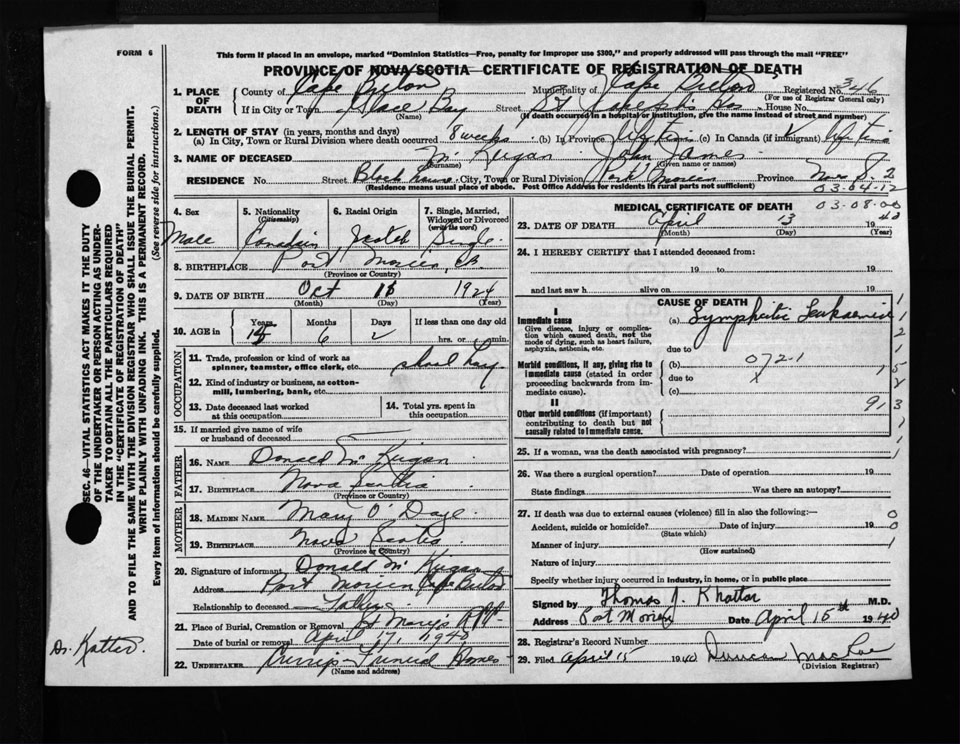 FORM 6
This form if placed in an envelope, marked "Dominion Statistics—Free, penalty for improper use $300," and properly addressed will pass through the mail "FREE"
PROVINCE OF NOVA SCOTIA—CERTIFICATE OF REGISTRATION OF DEATH
1. PLACE OF DEATH
County of Cape Breton Municipality of Cape Breton Registered No. 346
(For use of Registrar General only)
If in City or Town Glace Bay Street St Joseph's Hos House No.
(Name) (If death occurred in a hospital or institution, give the name instead of street and number)
2. LENGTH OF STAY (in years, months and days)
(a) In City, Town or Rural Division where death occurred 8 weeks (b) In Province Life time (c) In Canada (if immigrant) Life time
3. NAME OF DECEASED Mc Keigan John James
(Surname) (Given name or names)
RESIDENCE No. Street Block House City, Town or Rural Division Port Morien Province Nova S. 2
(Residence means usual place of abode. Post Office Address for residents in rural parts not sufficient)
03-04-12
03-08-00
4. Sex 5. Nationality (Citizenship) 6. Racial Origin 7. Single, Married, Widowed or Divorced (write the word)
Male Canadain Scotch Single
8. BIRTHPLACE Port Morien, CB
(Province or Country)
9. DATE OF BIRTH Oct 11 1924
(Month) (Day) (Year)
10. AGE in Years Months Days If less than one day old
15 6 2 hrs. or min.
OCCUPATION
11. Trade, profession or kind of work as spinner, teamster, office clerk, etc. school boy
12. Kind of industry or business, as cotton-mill, lumbering, bank, etc.
13. Date deceased last worked at this occupation
14. Total yrs. spent in this occupation.
15. If married give name of wife or husband of deceased
FATHER
16. NAME Donald Mc Keigan
17. BIRTHPLACE Nova Scotia
(Province or Country)
MOTHER
18. MAIDEN NAME Mary O'
19. BIRTHPLACE Nova Scotia
(Province or Country)
20. Signature of informant Donald Mc Keigan
Address Port Morien Cape Breton
Relationship to deceased Father
21. Place of Burial, Cremation or Removal St Mary's
Date of burial or removal April 17, 1940
22. UNDERTAKER Funeral Homes
(Name and address)
MEDICAL CERTIFICATE OF DEATH
23. DATE OF DEATH April 13 1940
(Month) (Day) (Year)
24. I HEREBY CERTIFY that I attended deceased from:
19 to 19
and last saw h alive on 19
CAUSE OF DEATH
I
Immediate cause
Give disease, injury or complication which caused death, not the mode of dying, such as heart failure, asphyxia, asthenia, etc.
(a) Lymphatic Leukaemia
due to
Morbid conditions, if any, giving rise to immediate cause (stated in order proceeding backwards from immediate cause).
(b) 072.1
due to
(c)
II
Other morbid conditions (if important) contributing to death but not causally related to immediate cause.
25. If a woman, was the death associated with pregnancy?
26. Was there a surgical operation? Date of operation 19
State findings Was there an autopsy?
27. If death was due to external causes (violence) fill in also the following:—
Accident, suicide or homicide? Date of injury 19
(State which)
Manner of injury
(How sustained)
Nature of injury
Specify whether injury occurred in industry, in home, or in public place
Signed by Thomas J. Khattar M.D.
Address Port Morien Date April 15th 1940
28. Registrar's Record Number
29. Filed April 15 1940 Duncan MacRae
(Division Registrar)
SEC. 46—VITAL STATISTICS ACT MAKES IT THE DUTY OF THE UNDERTAKER OR PERSON ACTING AS UNDERTAKER TO OBTAIN ALL THE PARTICULARS REQUIRED IN THE "CERTIFICATE OF REGISTRATION OF DEATH" AND TO FILE THE SAME WITH THE DIVISION REGISTRAR WHO SHALL ISSUE THE BURIAL PERMIT.
WRITE PLAINLY WITH UNFADING INK. THIS IS A PERMANENT RECORD.
Every item of information should be carefully supplied. (See reverse side for instructions.)
Dr. Katter.